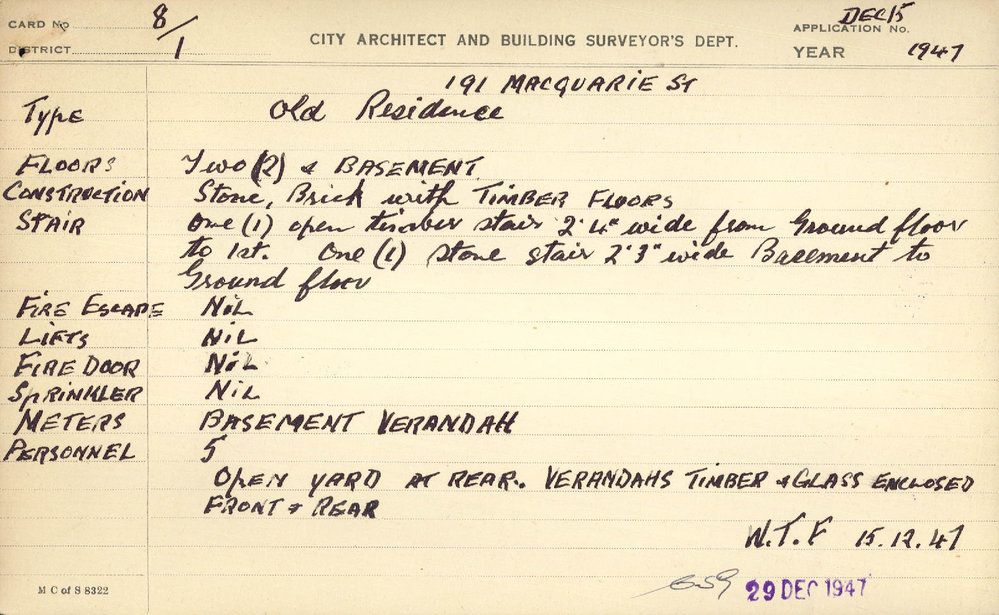 CARD No 8/1
DISTRICT
CITY ARCHITECT AND BUILDING SURVEYOR'S DEPT.
DEC 15
APPLICATION No.
YEAR 1947
191 MACQUARIE ST
Type Old Residence
FLOORS Two (2) & BASEMENT
CONSTRUCTION Stone, Brick with TIMBER FLOORS
STAIR One (1) open timber stair 2'4" wide from Ground floor
to 1st. One (1) Stone stair 2'3" wide Basement to
Ground floor
FIRE ESCAPE NIL
LIFTS NIL
FIRE DOOR NIL
SPRINKLER NIL
METERS BASEMENT VERANDAH
PERSONNEL 5
OPEN YARD AT REAR. VERANDAHS TIMBER & GLASS ENCLOSED
FRONT & REAR
W.T.F 15.12.47
M C of S 8322
659 29 DEC 1947